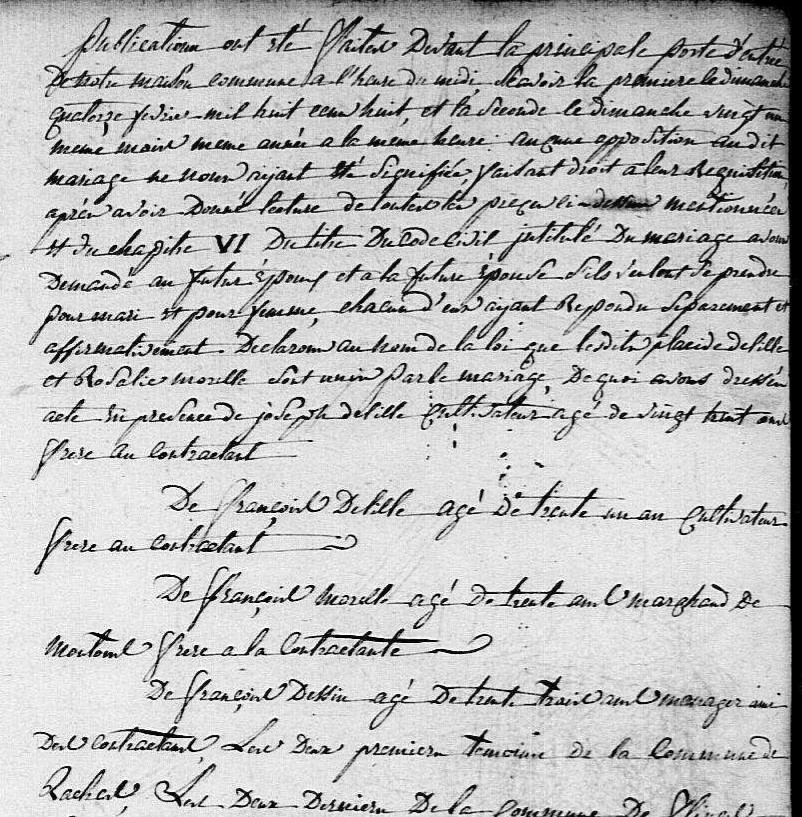 publications ont été faites Devant la principale porte d'entrée
De notre maison commune a l'heure du midi, scavoir la premiere le dimanche
quatorze fevrier mil huit cent huit, et la seconde le dimanche vingt un
meme mois meme année a la meme heure aucune opposition au dit
mariage ne nous ayant été signifiée, faisant droit a leur Requisition,
après avoir Donné lecture de toutes les pieces ci dessus mentionnées
et du chapitre VI Du titre Du code civil jntitulé Du mariage avons
Demandé au futur Epoux et a la future Epouse s'ils veulent se prendre
pour mari et pour femme, chacun d'eux ayant Repondu separement et
affirmativement. Declarons au nom de la loi que lesdits placide delille
et Rosalie morelle sont unis par le mariage, De quoi avons dressés
acte en presence de joseph delille Cultivateur agé de vingt huit ans
frere au Contractant
De françois Delille agé de trente un an Cultivateur
frere au contractant
De françois morelle agé De trente ans marchand De
moutons frere a la Contractante
De françois Dessin agé De trente trois ans menager ami
Des contractans, Les Deux premiers temoins de la Commune de
Raches, Les Deux Derniers De la Commune De flines